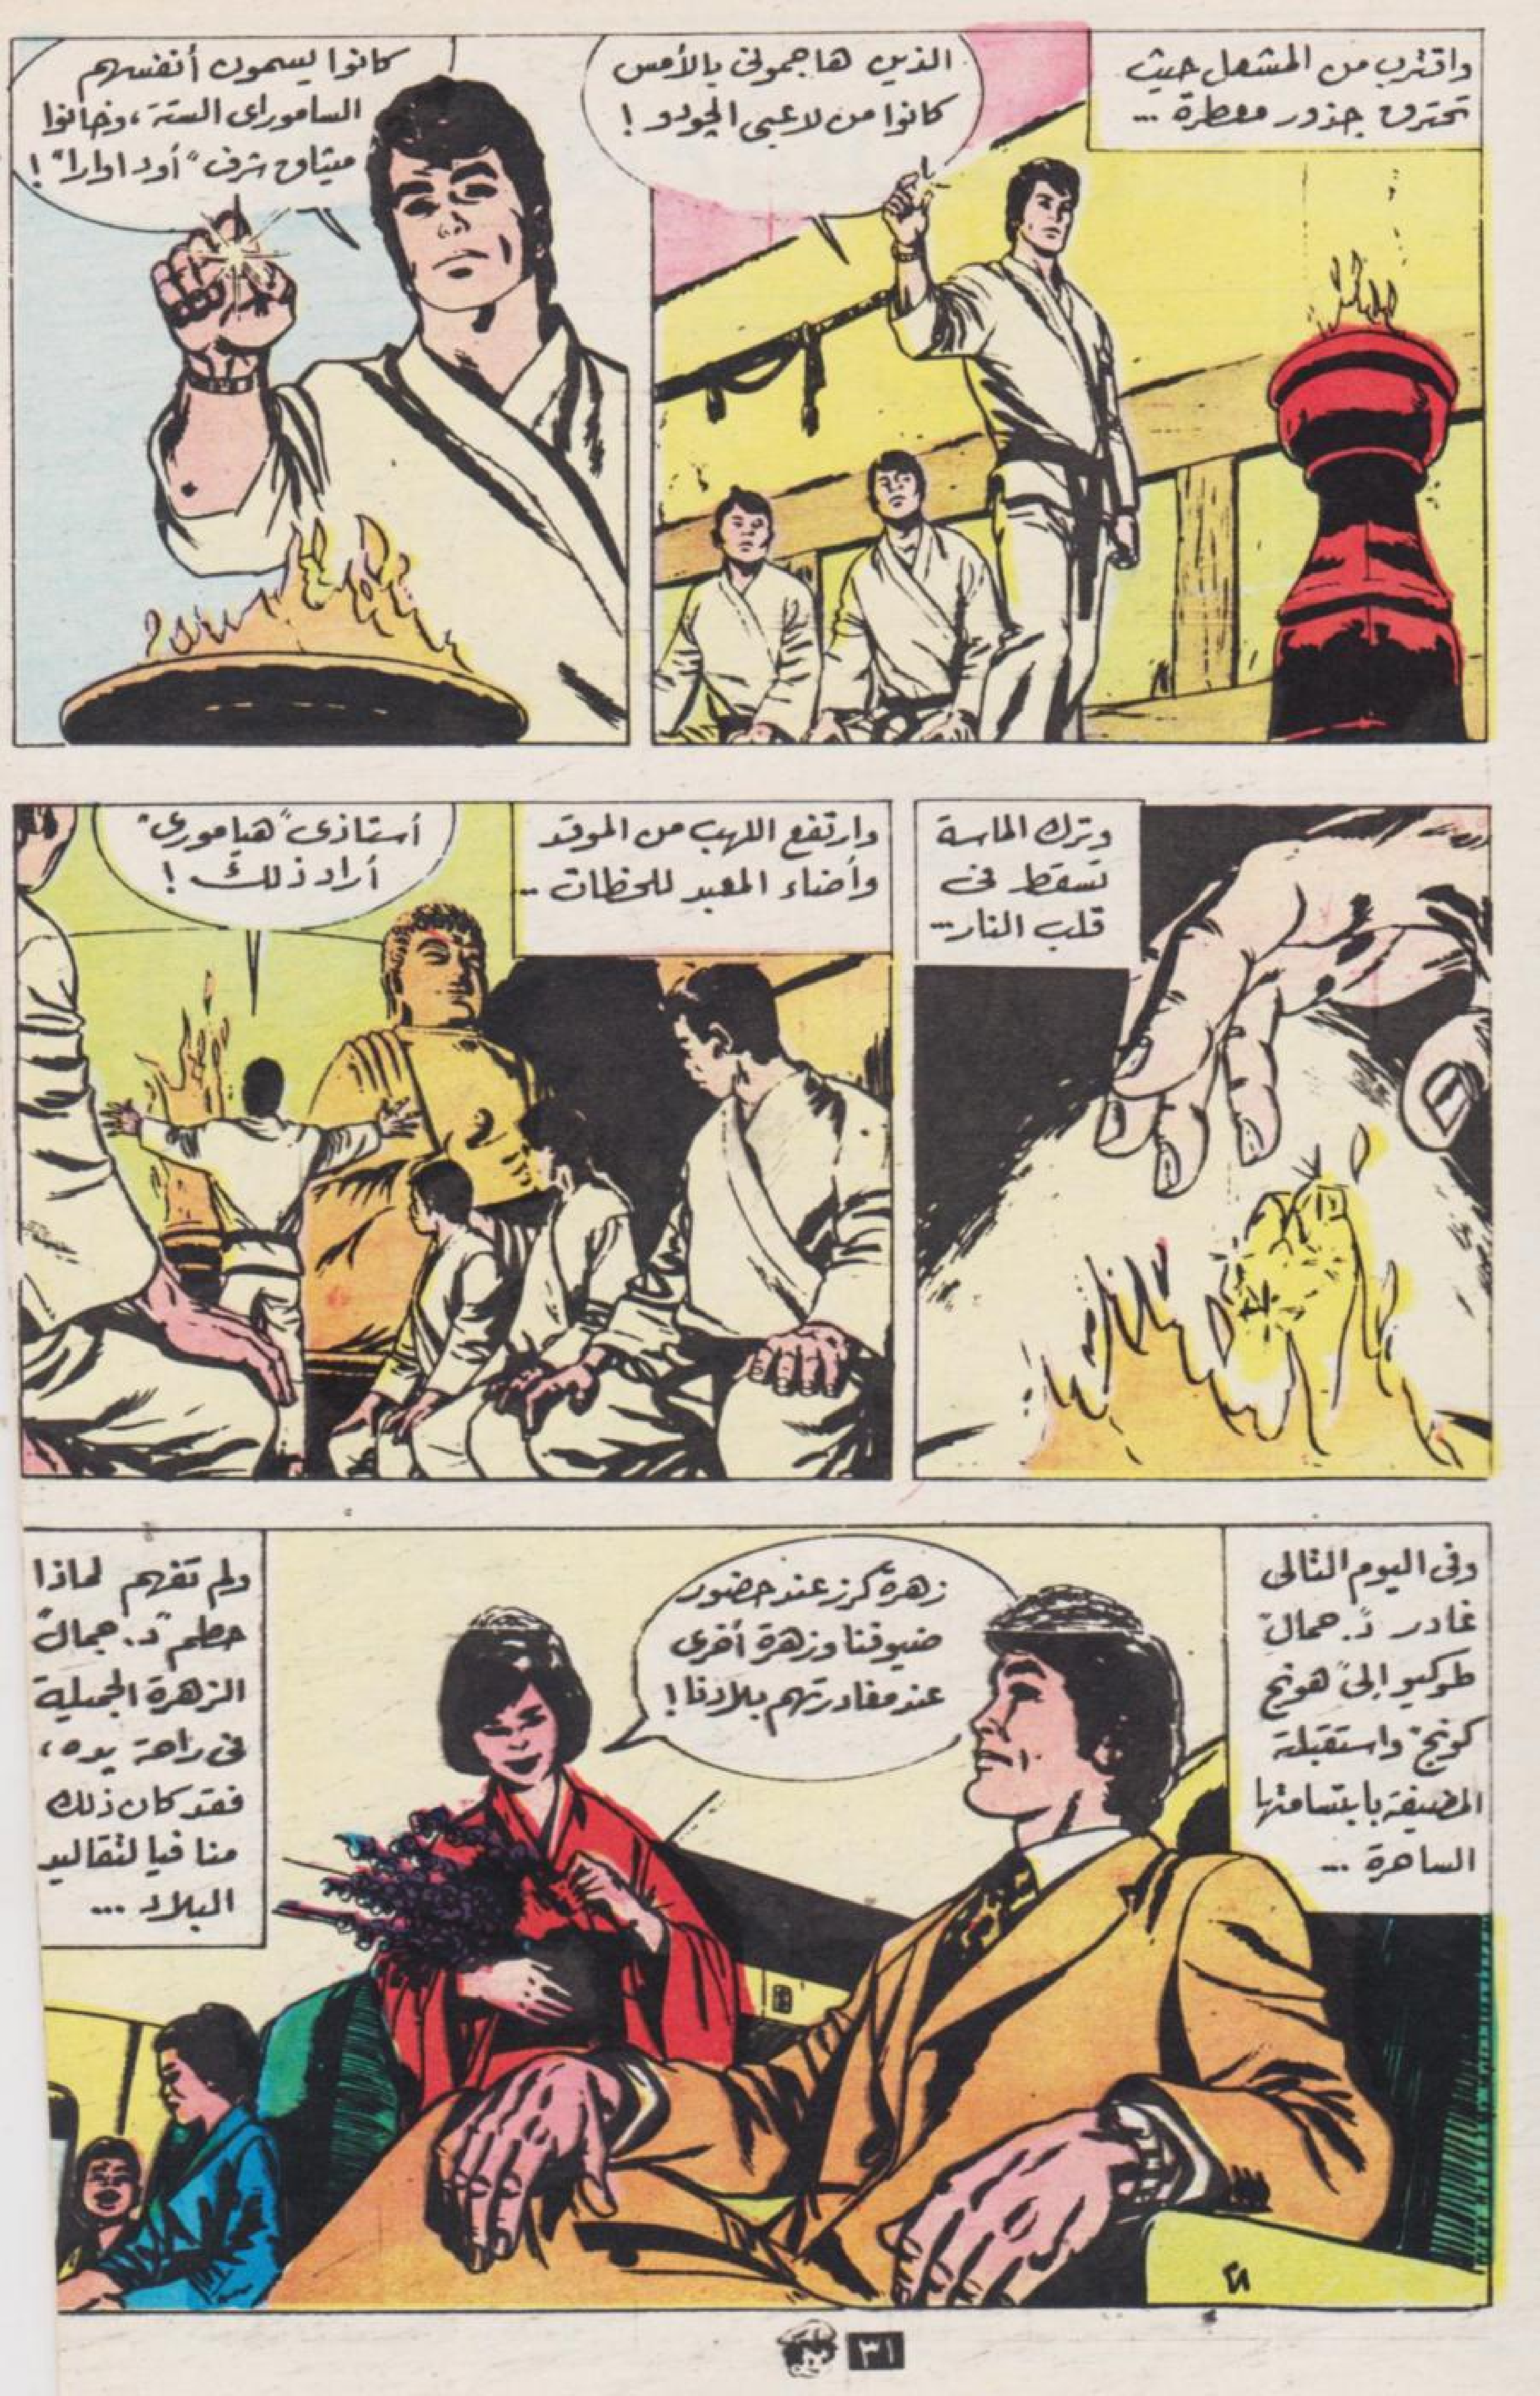 واقترب من المشعل حيث
تحترق جذور معطرة ...
الذين هاجموني بالأمس
كانوا من لاعبى الجودو !
كانوا يسمون أنفسهم
الساموراى الستة ، وخانوا
ميثاق شرف "أوداوارا" !
وترك الماسة
تسقط فى
قلب النار ...
وارتفع اللهب من الموقد
وأضاء المعبد للحظات ...
أستاذى "هيامورى"
أراد ذلك !
وفى اليوم التالى
غادر "د. جمال"
طوكيو إلى "هونج
كونج" واستقبلته
المضيفة بابتسامتها
الساحرة ...
زهرة كرز عند حضور
ضيوفنا وزهرة أخرى
عند مغادرتهم بلادنا !
ولم تفهم لماذا
حطم "د. جمال"
الزهرة الجميلة
فى راحة يده ،
فقد كان ذلك
منافيا لتقاليد
البلاد ...
٣١